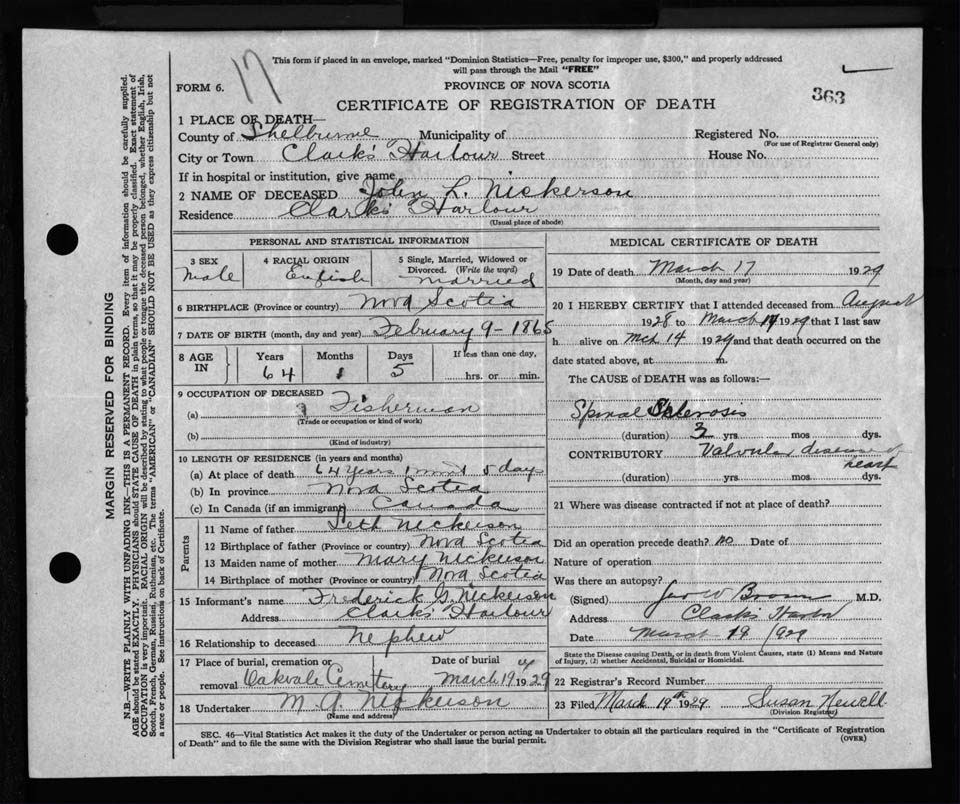 17
This form if placed in an envelope, marked "Dominion Statistics—Free, penalty for improper use, $300," and properly addressed
will pass through the Mail "FREE"
FORM 6.
PROVINCE OF NOVA SCOTIA
363
CERTIFICATE OF REGISTRATION OF DEATH
1 PLACE OF DEATH—
County of Shelburne Municipality of Registered No.
(For use of Registrar General only)
City or Town Clark's Harbour Street House No.
If in hospital or institution, give name
2 NAME OF DECEASED John L. Nickerson
Residence Clark's Harbour
(Usual place of abode)
PERSONAL AND STATISTICAL INFORMATION
3 SEX 4 RACIAL ORIGIN 5 Single, Married, Widowed or
Divorced. (Write the word)
Male English Married
6 BIRTHPLACE (Province or country) Nova Scotia
7 DATE OF BIRTH (month, day and year) February 9-1865
8 AGE IN Years Months Days If less than one day,
64 1 5 hrs. or min.
9 OCCUPATION OF DECEASED
(a) Fisherman
(Trade or occupation or kind of work)
(b)
(Kind of industry)
10 LENGTH OF RESIDENCE (in years and months)
(a) At place of death 64 years 1 5 days
(b) In province Nova Scotia
(c) In Canada (if an immigrant) Canada
Parents
11 Name of father Seth Nickerson
12 Birthplace of father (Province or country) Nova Scotia
13 Maiden name of mother Mary Nickerson
14 Birthplace of mother (Province or country) Nova Scotia
15 Informant's name Frederick G. Nickerson
Address Clark's Harbour
16 Relationship to deceased Nephew
17 Place of burial, cremation or Date of burial
removal Oakvale Cemetery March 19 1929
18 Undertaker M. A. Nickerson
(Name and address)
MEDICAL CERTIFICATE OF DEATH
19 Date of death March 17 1929
(Month, day and year)
20 I HEREBY CERTIFY that I attended deceased from August
1928 to March 14 1929 that I last saw
h alive on Mch 14 1929 and that death occurred on the
date stated above, at m.
The CAUSE OF DEATH was as follows:—
Spinal Sclerosis
(duration) 3 yrs. mos. dys.
CONTRIBUTORY Valvular disease of
heart
(duration) yrs. mos. dys.
21 Where was disease contracted if not at place of death?
Did an operation precede death? no Date of
Nature of operation
Was there an autopsy?
(Signed) Geo W Brown M.D.
Address Clark's
Date March 19 1929
State the Disease causing Death, or in death from Violent Causes, state (1) Means and Nature
of Injury, (2) whether Accidental, Suicidal or Homicidal.
22 Registrar's Record Number
23 Filed March 19th 1929 Susan Newell
(Division Registrar)
SEC. 46—Vital Statistics Act makes it the duty of the Undertaker or person acting as Undertaker to obtain all the particulars required in the "Certificate of Registration
of Death" and to file the same with the Division Registrar who shall issue the burial permit. (OVER)
MARGIN RESERVED FOR BINDING
N.B.—WRITE PLAINLY WITH UNFADING INK—THIS IS A PERMANENT RECORD. Every item of information should be carefully supplied.
AGE should be stated EXACTLY. PHYSICIANS should STATE CAUSE OF DEATH in plain terms, so that it may be properly classified. Exact statement of
OCCUPATION is very important. RACIAL ORIGIN will be described by stating to what people or tongue the deceased person belonged, whether English, Irish,
Scotch, French, German, Russian, Ruthenian, etc. The terms "AMERICAN" or "CANADIAN" SHOULD NOT BE USED as they express citizenship but not
a race or people. See instructions on back of Certificate.